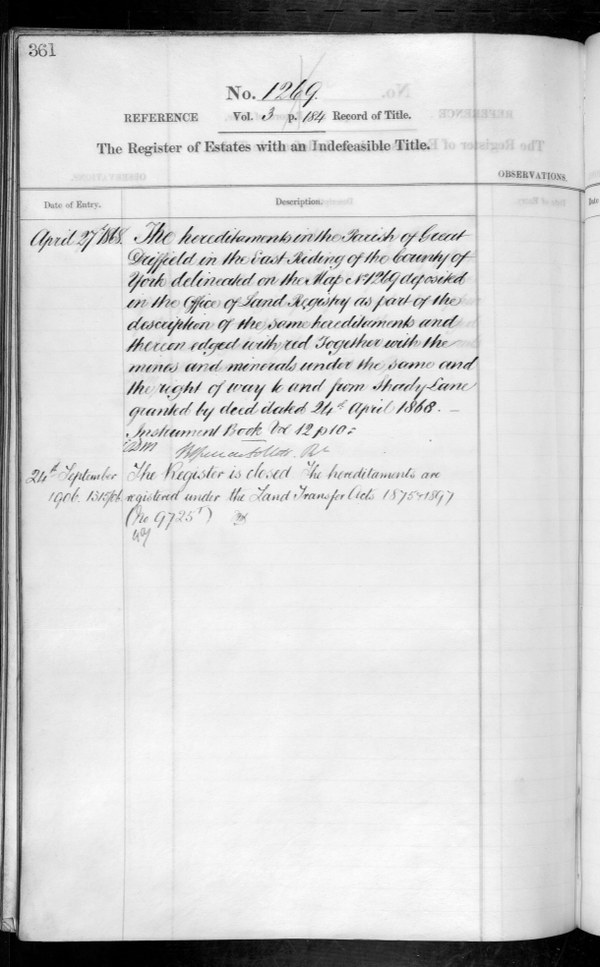 361
No. 1269.
REFERENCE Vol. 3 p. 184 Record of Title.
The Register of Estates with an Indefeasible Title.
OBSERVATIONS.
Date of Entry. Description.
April 27th 1868. The hereditaments in the Parish of Great
Driffield in the East Riding of the County of
York delineated on the Map No 1269 deposited
in the Office of Land Registry as part of the
description of the same hereditaments and
thereon edged with red Together with the
mines and minerals under the same and
the right of way to and from Shady Lane
granted by deed dated 24th April 1868. —
Instrument Book Vol 12 p 10
24th September The Register is closed The hereditaments are
1906. registered under the Land Transfer Acts 1875 & 1897
(No 9725)